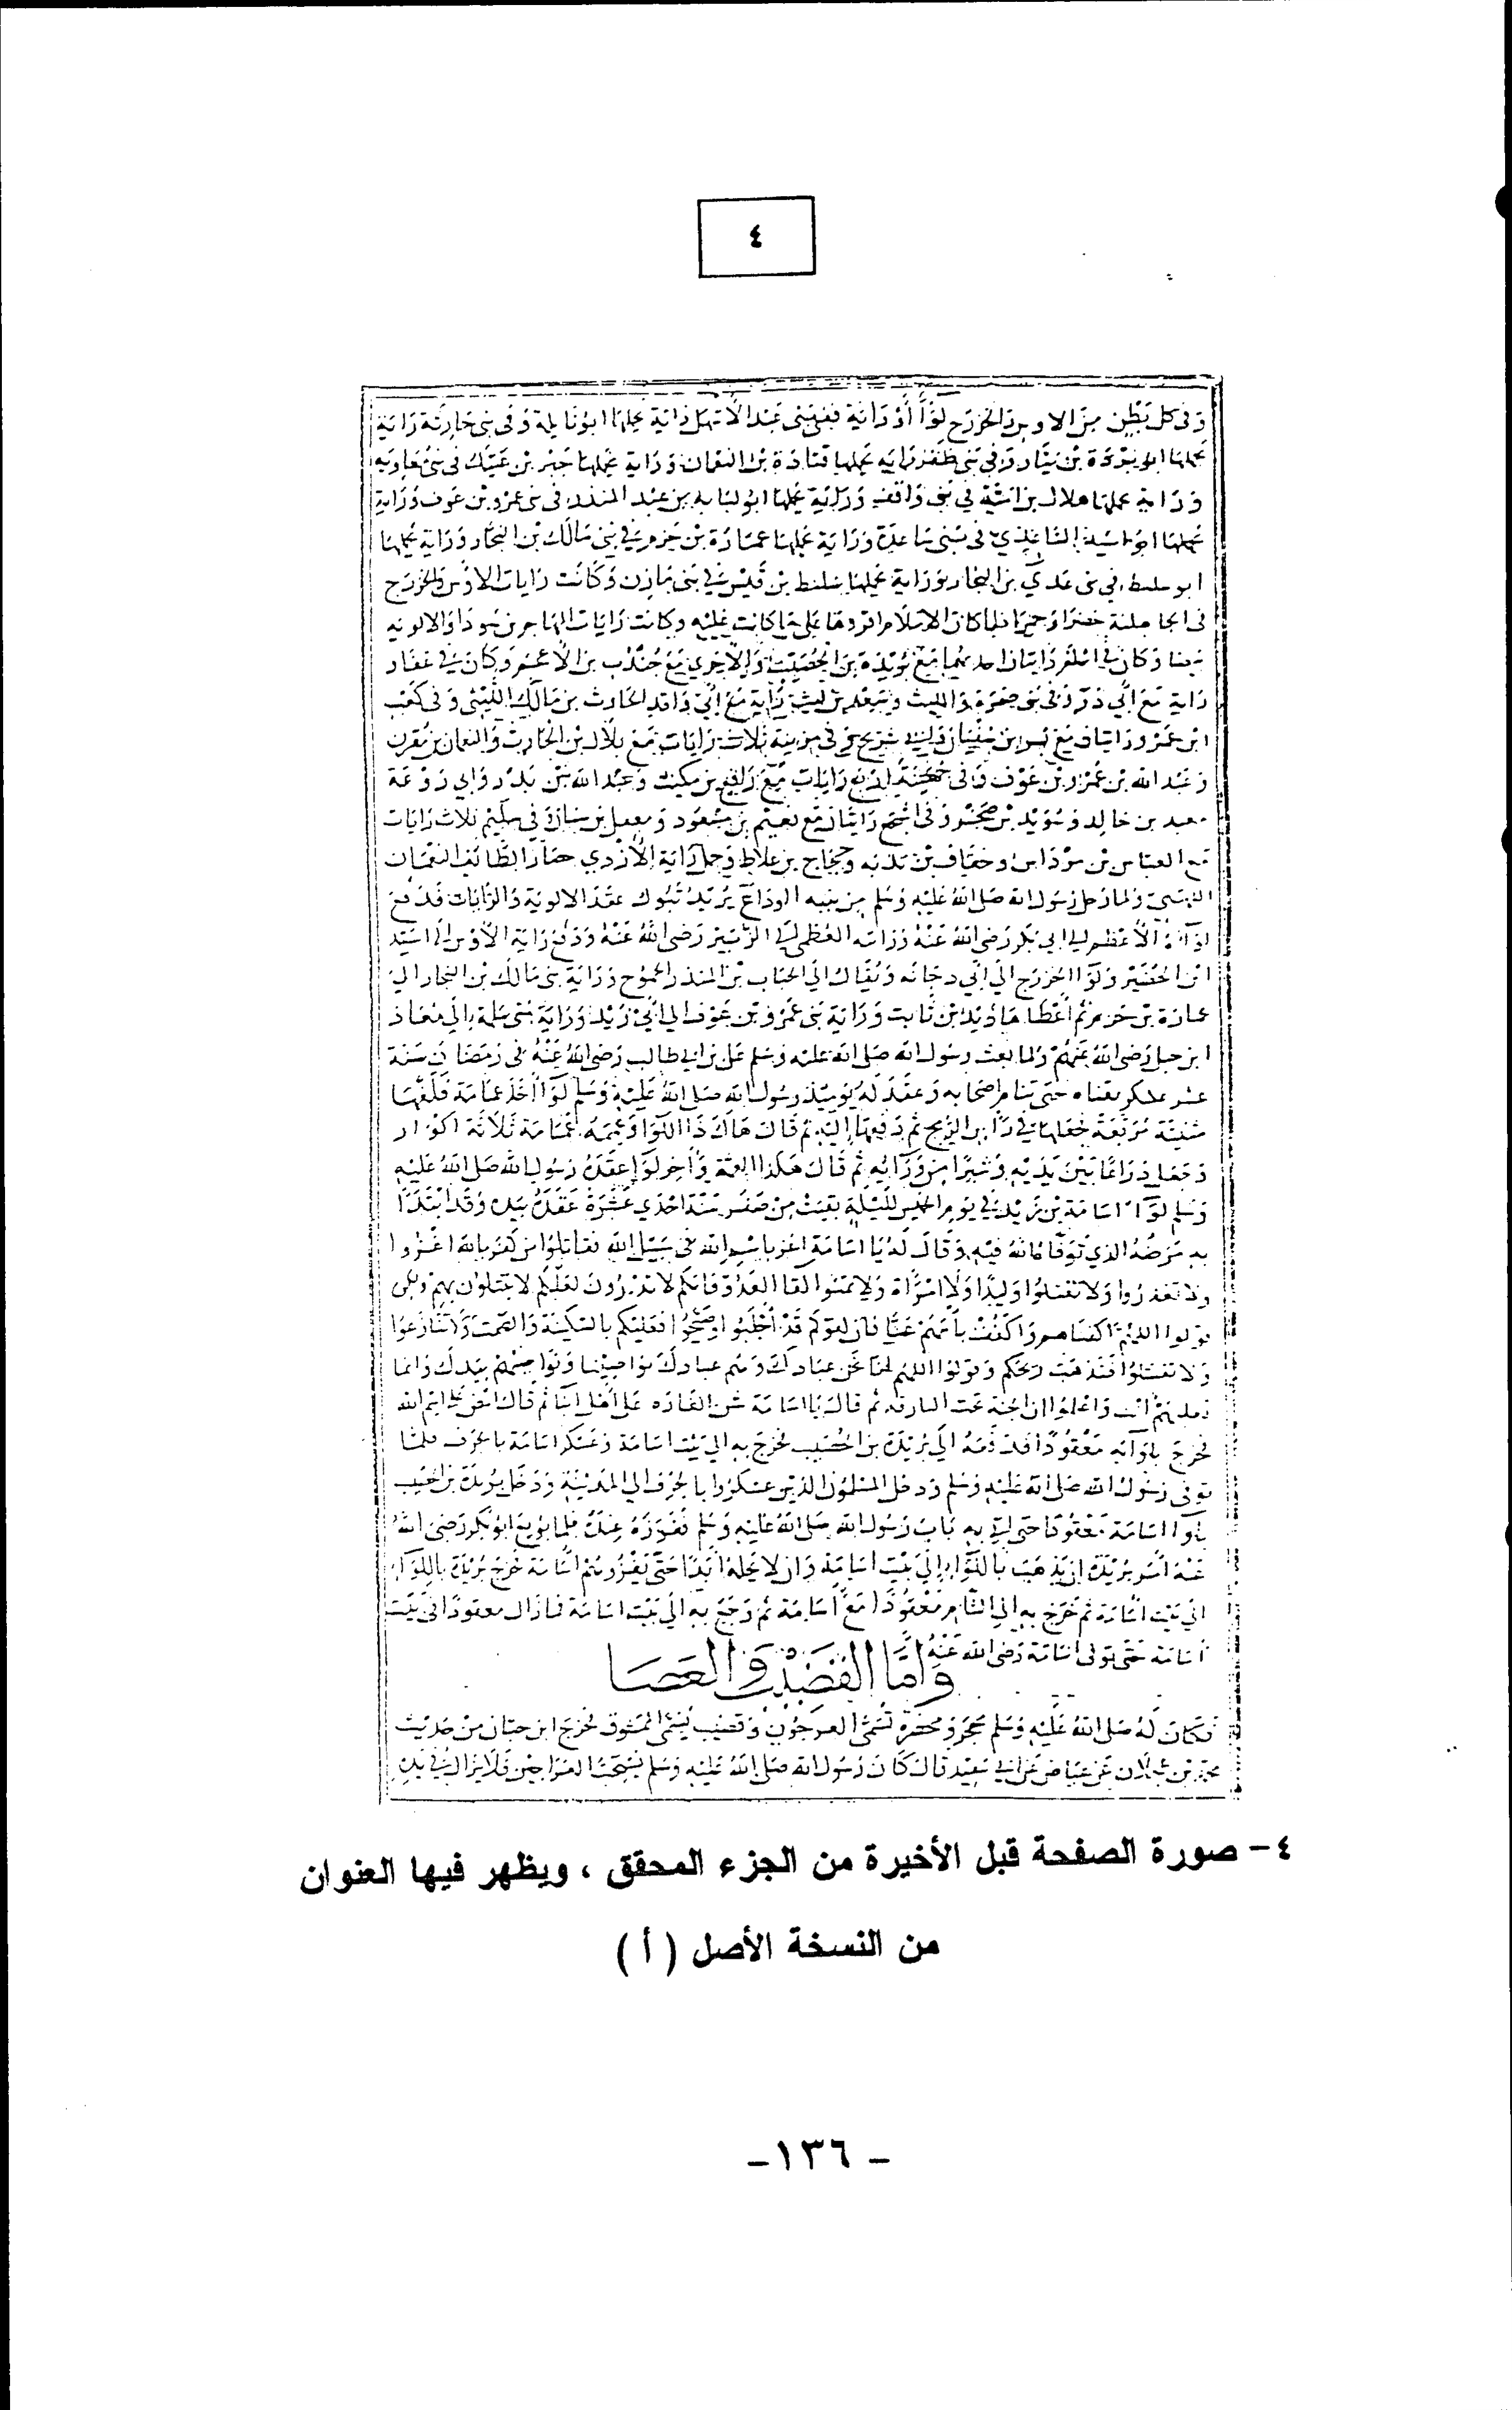 ٤
وفي كل بطن من الاوس والخزرج لوآأ أو راية ففي بنى عبد الاشهل راية يحملها ابو نايلة وفى بنى حارثة راية
يحملها ابو بردة بن نيار وفي بنى ظفر رايه يحملها قتادة بن النعمان وراية يحملها جبر بن عتيك في بنى معاويه
وراية يحملها هلال بن امية في بنى واقف وراية يحملها ابو لبابه بن عبد المنذر فى بنى عمرو بن عوف وراية
يحملها ابو اسيد الساعدي فى بنى ساعدة وراية يحملها عمارة بن حزم في بنى مالك بن النجار وراية يحملها
ابو سليط في بنى عدي بن النجار وراية يحملها سليط بن قيس في بنى مازن وكانت رايات الاوس والخزرج
فى الجاهلية خضرا وحمرا فلما كان الاسلام اقروها على ما كانت عليه وكانت رايات المهاجرين سودا والالويه
بيضا وكان في اسلم رايتان احديهما مع بريدة بن الحصيب والاخري مع جندب بن الاعجم وكان في غفار
راية مع ابي ذر وفى بنى ضمرة والليث وسعد بن ليث راية مع ابي واقد الحارث بن مالك الليثى وفى كعب
ابن عمرو رايتان مع بسر بن سفيان وابي شريح وفى مزينة ثلاث رايات مع بلال بن الحارث والنعمان بن مقرن
وعبد الله بن عمرو بن عوف وفى جهينة اربع رايات مع رافع بن مكيث وعبد الله بن بدر وابي زوعة
معبد بن خالد وسويد بن صخر وفى اشجع رايتان مع نعيم بن مسعود ومعقل بن سنان وفي سليم ثلاث رايات
مع العباس بن مرداس وخفاف بن ندبه وحجاج بن علاط وحمل راية الازدي حصار الطائف النعمان
ولما رحل رسول الله صلى الله عليه وسلم من ثنيه الوداع يريد تبوك عقد الالوية والرايات فدفع
لوآءه الأعظم الى ابي بكر رضى الله عنه ورايته العظمى الى الزبير رضى الله عنه ودفع راية الاوس الى اسيد
ابن الحضير ولوآ الخزرج الي ابي دجانه ويقال الي الحباب بن المنذر الجموح وراية بنى مالك بن النجار الي
عمارة بن حزم ثم أعطاها زيد بن ثابت وراية بنى عمرو بن عوف الي ابي زيد وراية بنى سلمة الي معاذ
ابن جبل رضى الله عنهم ولما بعث رسول الله صلى الله عليه وسلم على بن ابي طالب رضى الله عنه فى رمضان سنة
عشر عسكر بقناه حتى تتام اصحابه وعقد له يوميذ رسول الله صلى الله عليه وسلم لوآأ اخذ عمامة فلفها
مثنية مربعة فجعلها في راس الرمح ثم دفعها إليه ثم قال هاك ذا اللوا وعممه عمامة ثلاثة اكوار
وجعل ذراعا بين يديه وشبرا من ورآئه ثم قال هكذا العمة وآخر لوآ عقده رسول الله صلى الله عليه
وسلم لوآ اسامة بن زيد في يوم الخميس لليلة بقيت من صفر سنة احدي عشرة عقده بيده وقد ابتدأ
به مرضه الذي توفاه الله فيه وقال له يا اسامة اغز باسم الله في سبيل الله فقاتلوا من كفر بالله اغزوا
ولا تغدروا ولا تقتلوا وليدا ولا امرأة ولا تمنوا لقا العدو فانكم لا تدرون لعلكم لا تبتلون بهم ولكن
قولوا اللهم اكفناهم واكفف بأسهم عنا فان لقوكم قد أجلبوا وضجوا فعليكم بالسكينة والصمت ولا تنازعوا
ولا تفشلوا فتذهب ريحكم وقولوا اللهم انما نحن عبادك وهم عبادك نواصينا ونواصيهم بيدك وانما
تغلبهم انت واعلموا ان الجنة تحت البارقه ثم قال يا اسامة شن الغاره على أهل ابنا ثم قال امض على اسم الله
فخرج بلوآئه معقودا فدفعه الي بريدة بن الحصيب فخرج به الي بيت اسامة وعسكر اسامة بالجرف فلما
توفى رسول الله صلى الله عليه وسلم ودخل المسلمون الذين عسكروا بالجرف الي المدينة ودخل بريدة بن الحصيب
بلوآ اسامة معقودا حتى اتى به باب رسول الله صلى الله عليه وسلم فغرزه عنده فلما بويع ابو بكر رضى الله
عنه أمر بريدة ان يذهب باللوآء الي بيت اسامة وان لا يحله أبدا حتى يغزوهم اسامة فخرج بريدة باللوآء
الي بيت اسامة ثم خرج به الي الشام معقودا مع أسامة ثم رجع به الي بيت اسامة فما زال معقودا فى بيت
أسامة حتى توفى اسامة رضى الله عنه
وامّا القضيب والعصا
فكان له صلى الله عليه وسلم محجن ومخصرة تسمى العرجون وقضيب يسمى الممشوق خرج ابن حبان من حديث
محمد بن عجلان عن عياض عن ابي سعيد قال كان رسول الله صلى الله عليه وسلم تعجبه العراجين فلا يزال في يده
٤ – صورة الصفحة قبل الأخيرة من الجزء المحقق ، ويظهر فيها العنوان
من النسخة الأصل ( أ )
– ١٣٦ –